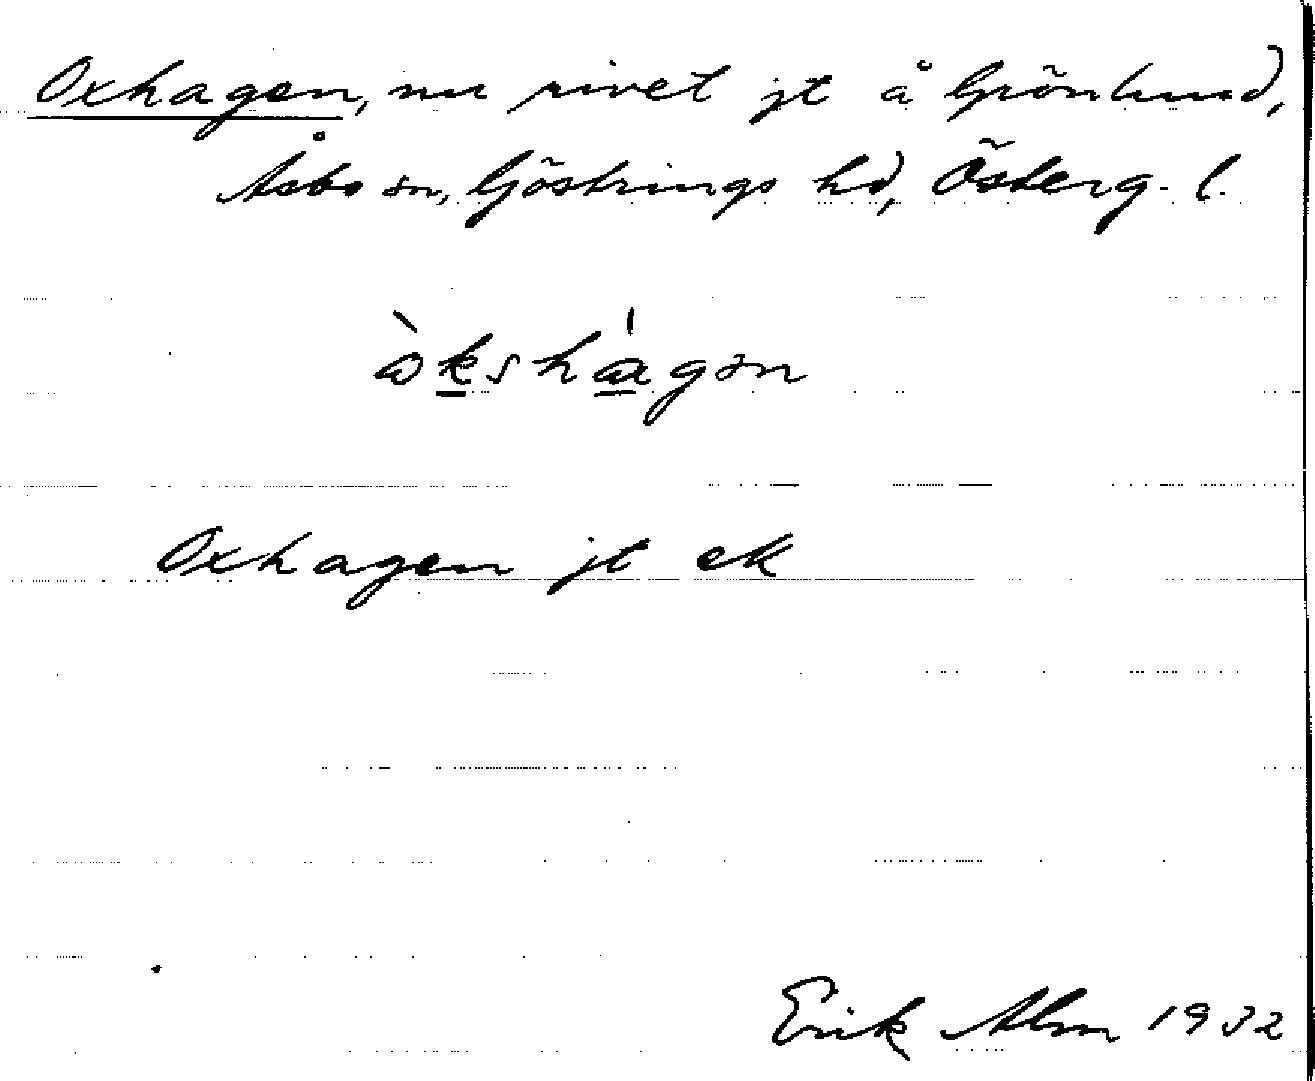 Oxhagen, nu rivet jt å Grönlund,
Åsbo sn, Göstrings hd, Österg. l.
òkshágən
Oxhagen jt ek
Erik Alm 1932